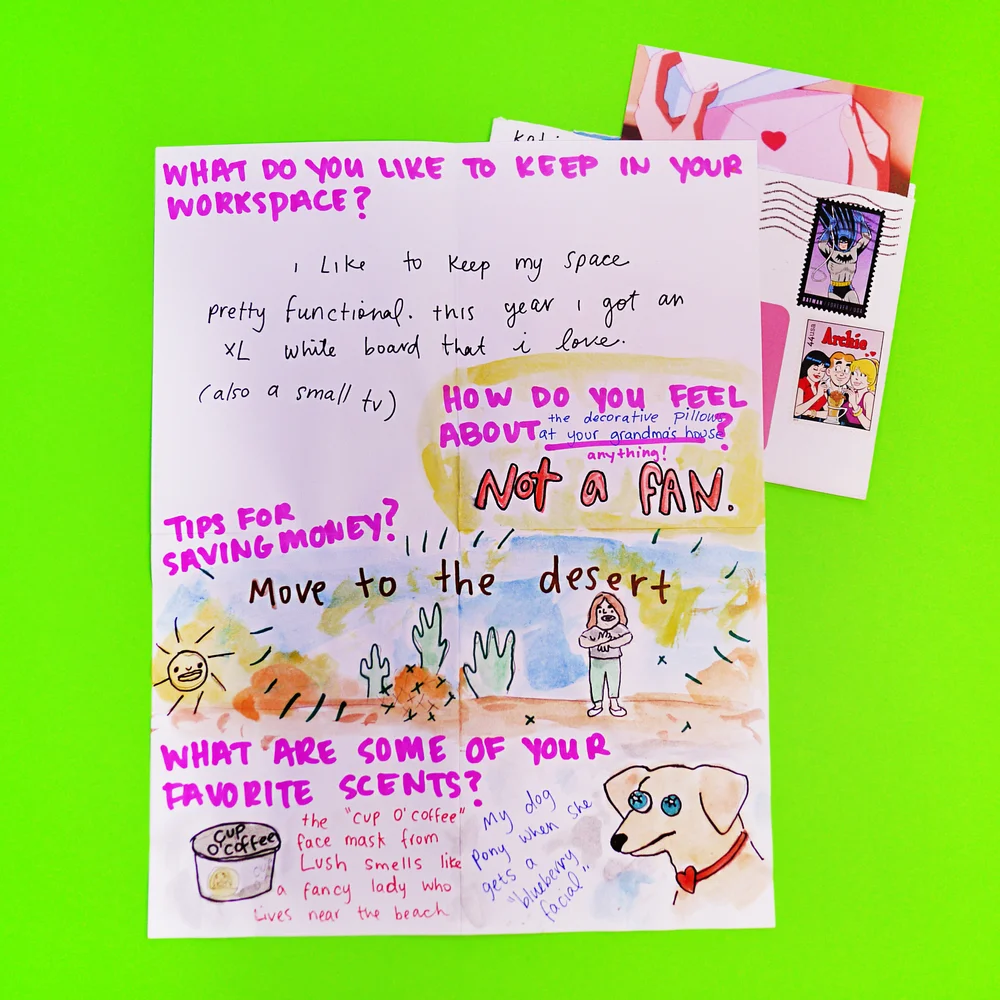 WHAT DO YOU LIKE TO KEEP IN YOUR
WORKSPACE?
i Like to keep my space
pretty functional. this year i got an
XL white board that i love.
(also a small tv)
HOW DO YOU FEEL
ABOUT the decorative pillows
at your grandma's house?
anything!
Not a FAN.
TIPS FOR
SAVING MONEY?
Move to the desert
WHAT ARE SOME OF YOUR
FAVORITE SCENTS?
CUP
O'COFFEE
the "cup O'coffee"
face mask from
Lush smells like
a fancy lady who
lives near the beach
My dog
Pony when she
gets a
"blueberry
facial"
BATMAN FOREVER
44 USA
Archie